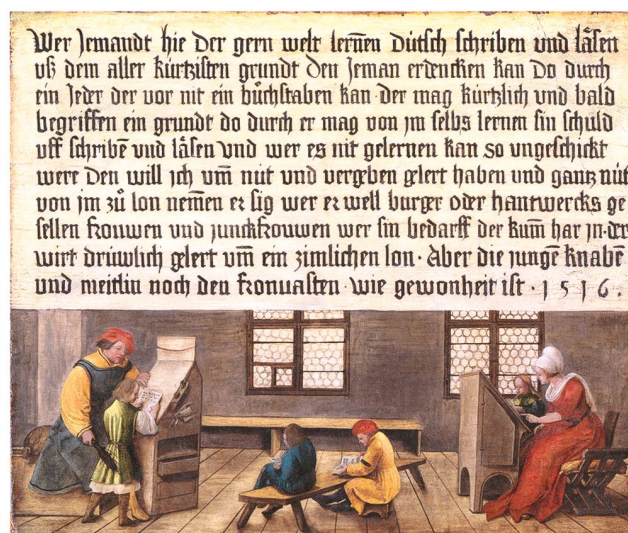 Wer Jemandt hie der gern welt lern̄en Dütsch schriben vnd låsen
vß dem aller kürtzisten grundt den Jeman erdencken kan Do durch
ein Jeder der vor nit ein bůchstaben kan · der mag kürtzlich vnd bald
begriffen ein grundt do durch er mag von jm selbs lernen sin schuld
vff schribē vnd låsen vnd wer es nit gelernen kan so vngeschickt
were Den will jch vm̄ nüt vnd vergeben gelert haben vnd gantz nüt
von jm zů lon nem̄en er sig wer er well burger oder hantwercks ge
sellen frouwen vnd junckfrouwen wer sin bedarff der kum̄ har jn · der
wirt drüwlich gelert vm̄ ein zimlichen lon · Aber die jungē knabē
vnd meitlin noch den fronuasten wie gewonheit ist · 1516 ·